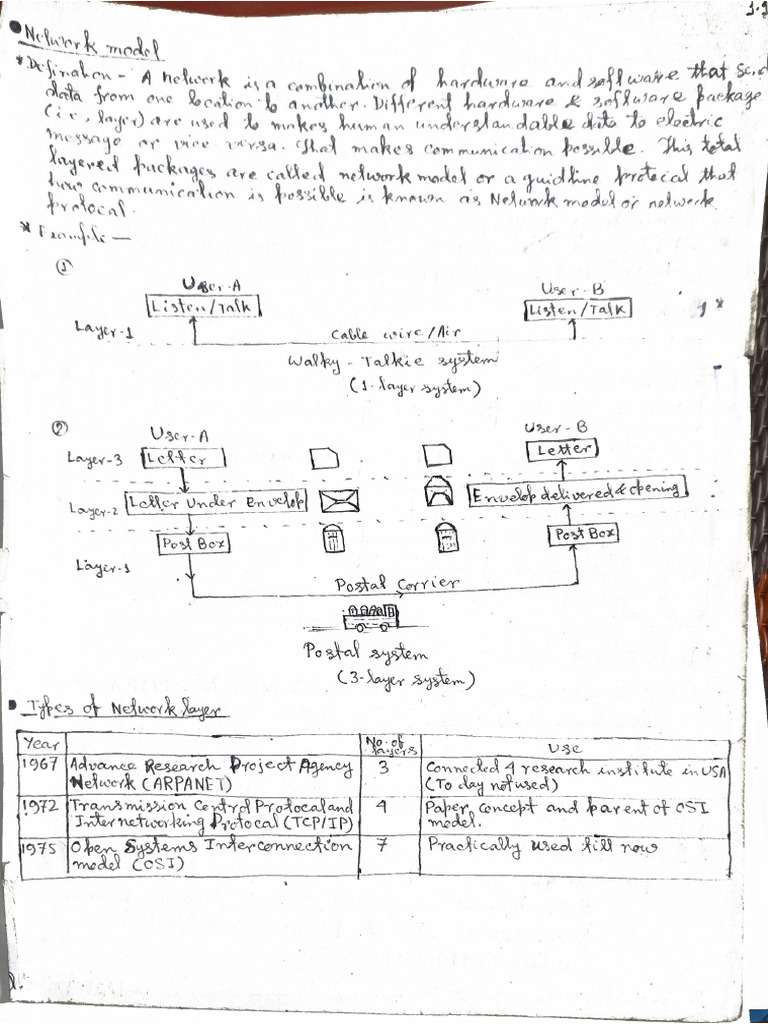 1.1
Network model
* Defination - A network is a combination of hardware and software that send
data from one location to another. Different hardware & software package
(i.e, layer) are used to makes human understandable data to electric
message or vice versa. That makes communication possible. This total
layered packages are called network model or a guidline protocal that
how communication is possible is known as Network model or network
protocal.
* Example —
①
User-A User-B
Listen/Talk Listen/Talk
Layer-1 Cable wire/Air
Walky-Talkie system
(1-layer system)
②
User-A User-B
Layer-3 Letter Letter
Layer-2 Letter Under Envelop Envelop delivered & opening
Post Box Post Box
Layer-1
Postal Corrier
Postal system
(3-layer system)
Types of Network layer
Year No. of layers Use
1967 Advance Research Project Agency Network (ARPANET) 3 Connected 4 research institute in USA (To day not used)
1972 Transmission Control Protocal and Internetworking Protocal (TCP/IP) 4 Paper, concept and parent of OSI model.
1975 Open Systems Interconnection model (OSI) 7 Practically used till now